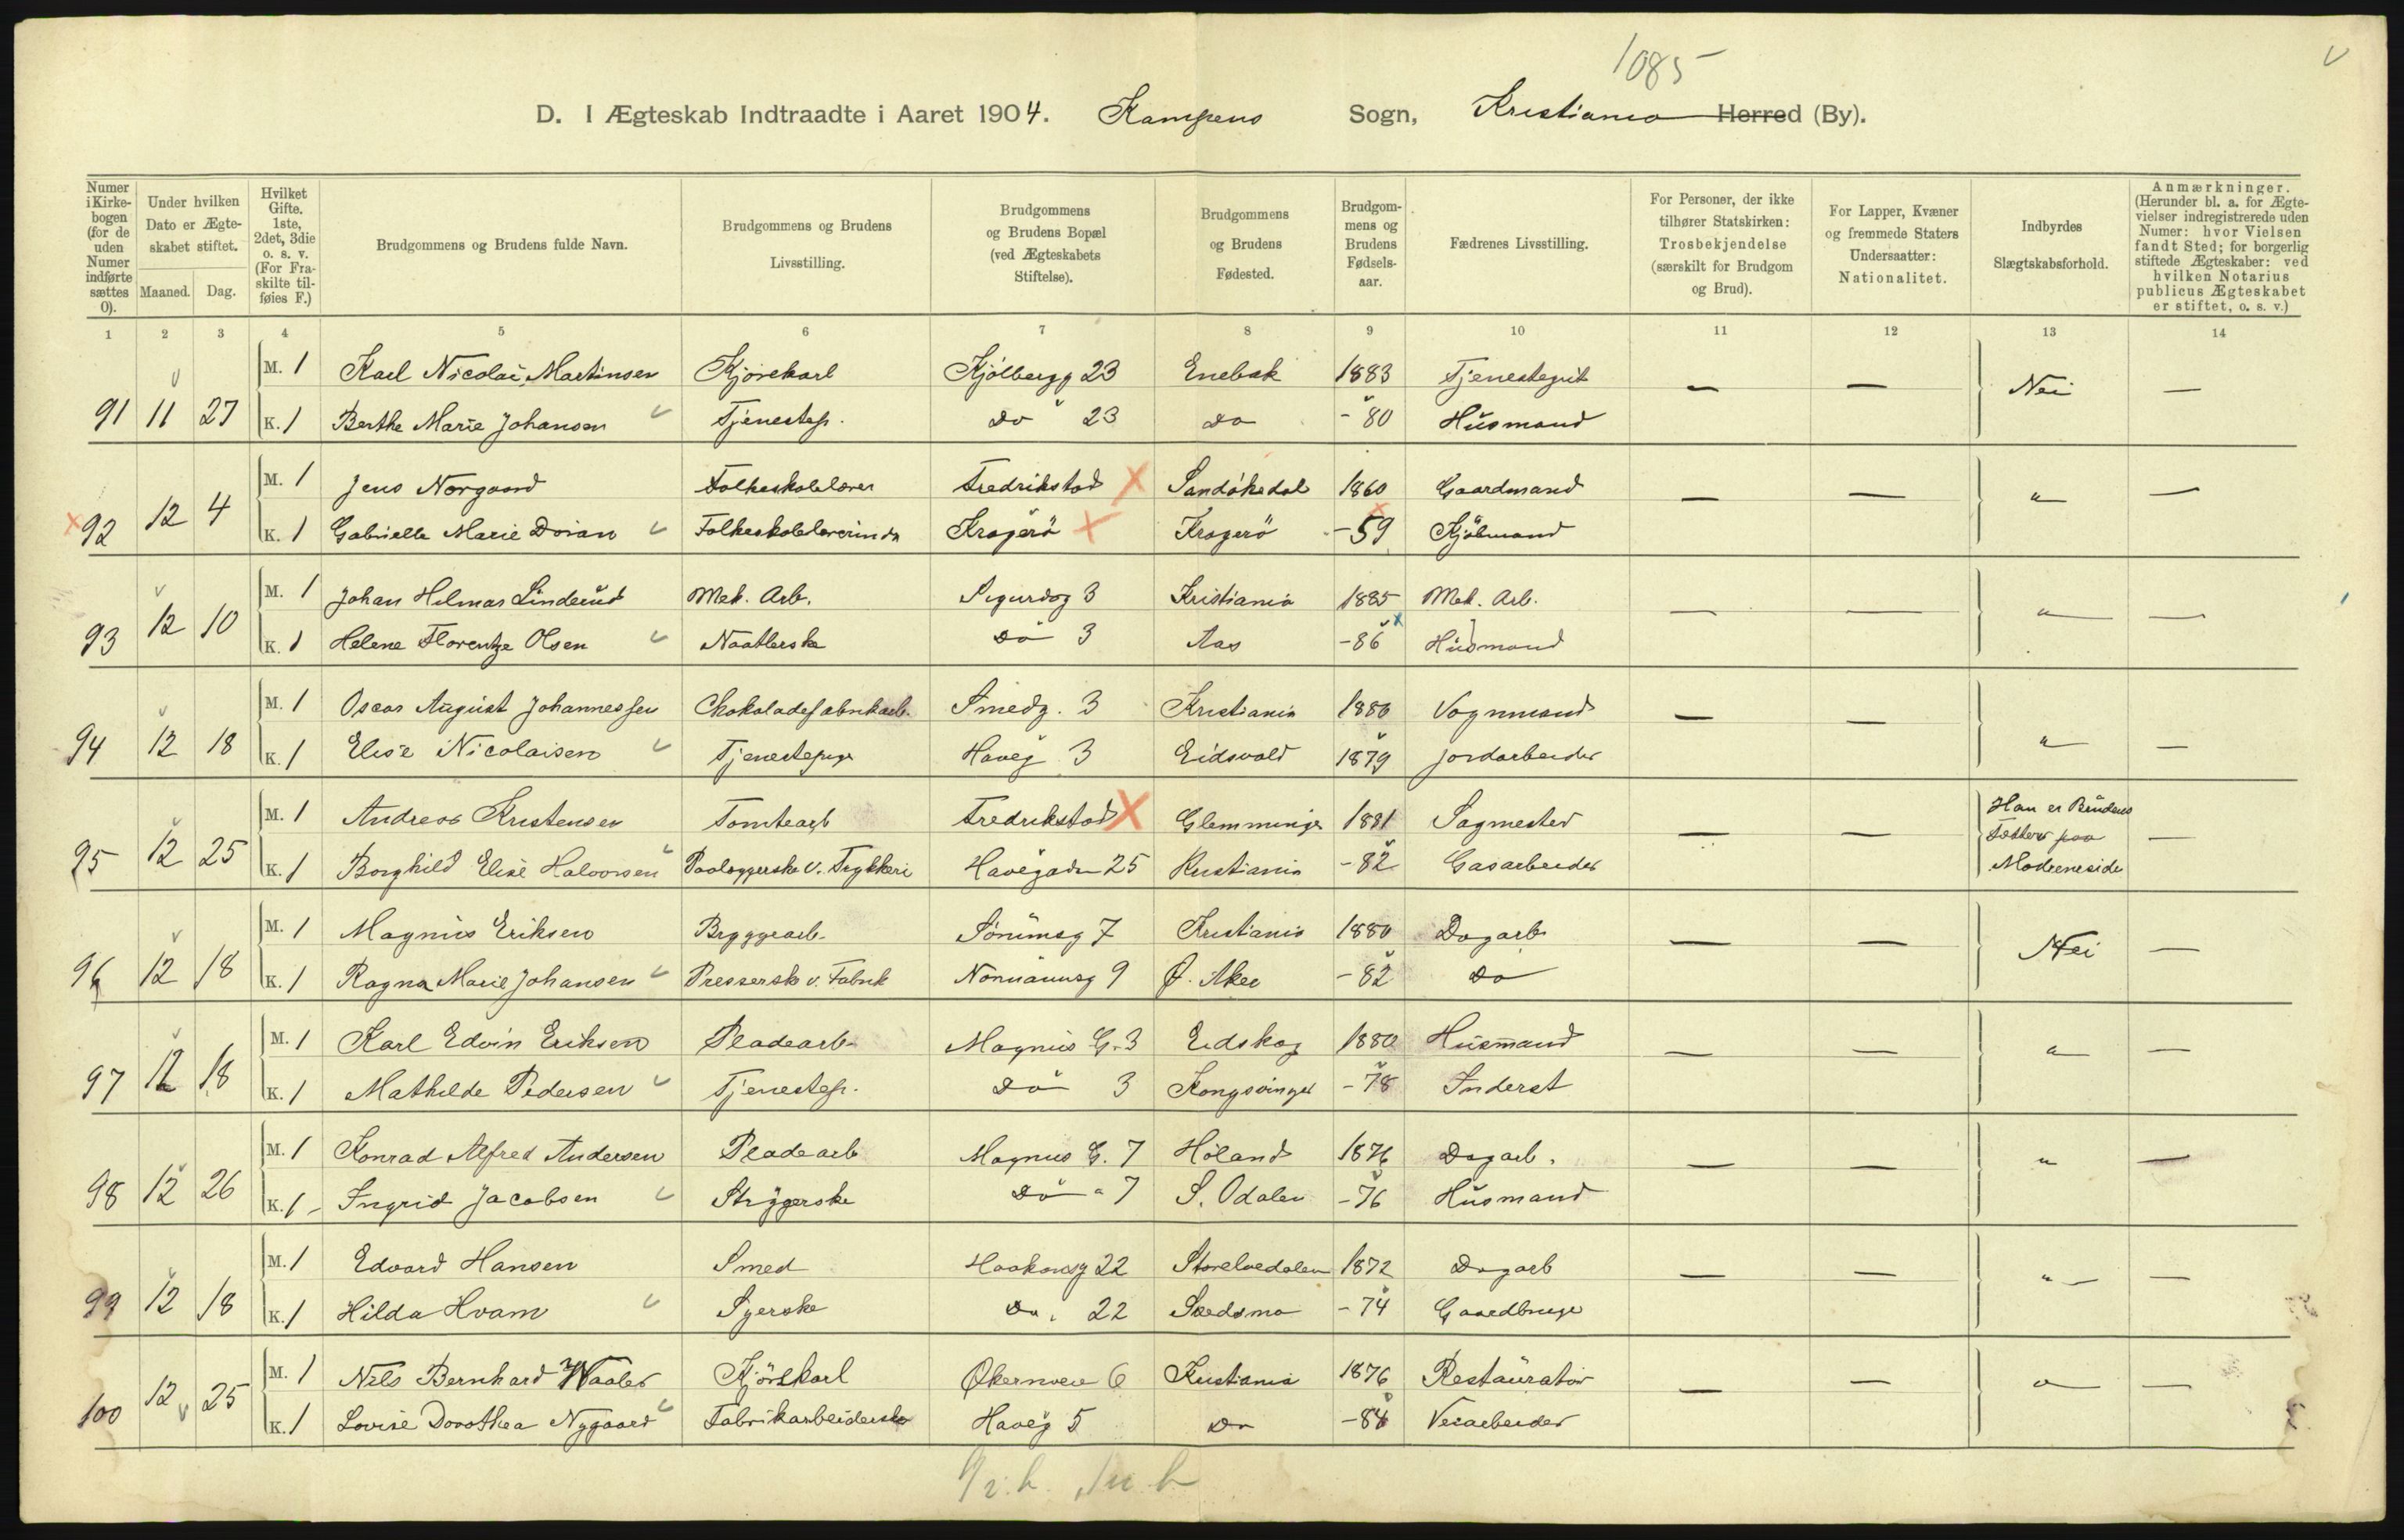 1085
D. I Ægteskab Indtraadte i Aaret 1904. Kampens Sogn, Kristiania Herred (By).
Numer i Kirkebogen (for de uden Numer indførte sættes 0).
Under hvilken Dato er Ægteskabet stiftet.
Maaned. Dag.
Hvilket Gifte. 1ste, 2det, 3die o. s. v. (For Fraskilte tilføies F.)
Brudgommens og Brudens fulde Navn.
Brudgommens og Brudens Livsstilling.
Brudgommens og Brudens Bopæl (ved Ægteskabets Stiftelse).
Brudgommens og Brudens Fødested.
Brudgommens og Brudens Fødselsaar.
Fædrenes Livsstilling.
For Personer, der ikke tilhører Statskirken: Trosbekjendelse (særskilt for Brudgom og Brud).
For Lapper, Kvæner og fremmede Staters Undersaatter: Nationalitet.
Indbyrdes Slægtskabsforhold.
Anmærkninger. (Herunder bl. a. for Ægtevielser indregistrerede uden Numer: hvor Vielsen fandt Sted; for borgerlig stiftede Ægteskaber: ved hvilken Notarius publicus Ægteskabet er stiftet, o. s. v.)
1 2 3 4 5 6 7 8 9 10 11 12 13 14
M. 1 Karl Nicolai Martinsen Kjørekarl Kjølbergg 23 Enebak 1883 Tjenestegut — — Nei —
91 11 27 K. 1 Berthe Marie Johansen Tjenestep. Do 23 Do - 80 Husmand
M. 1 Jens Norgaard Folkeskolelærer Fredrikstad Sandøkedal 1860 Gaardmand — — " —
92 12 4 K. 1 Gabrielle Marie Dorian Folkeskolelærerinde Kragerö Kragerö - 59 Kjöbmand
M. 1 Johan Hilmar Linderud Mek. Arb. Sigurdsg 3 Kristiania 1885 Mek. Arb. — — " —
93 12 10 K. 1 Helene Florentze Olsen Naatlerske Do 3 Aas - 86 Husmand
M. 1 Oscar August Johannessen Chokoladefabrikarb. Smedg. 3 Kristiania 1880 Vognmand — — " —
94 12 18 K. 1 Elise Nicolaisen Tjenestepige Haveg 3 Eidsvold 1879 Jordarbeider
M. 1 Andreas Kristensen Tomtearb Fredrikstad Glemminge 1881 Sagmester — — Han er Brudens Fætter paa Modreneside —
95 12 25 K. 1 Borghild Elise Halvorsen Paalæggerske v. Trykkeri Havegaden 25 Kristiania - 82 Gasarbeider
M. 1 Magnus Eriksen Bryggearb. Sörumsg 7 Kristiania 1880 Dagarb — — Nei —
96 12 18 K. 1 Ragna Marie Johansen Presserske v. Fabrik Normannsg 9 Ø. Aker - 82 Do
M. 1 Karl Edvin Eriksen Pladearb Magnus G. 3 Eidskog 1880 Husmand — — " —
97 12 18 K. 1 Mathilde Pedersen Tjenestep. Do 3 Kongsvinger - 78 Inderst
M. 1 Konrad Alfred Andersen Pladearb Magnus G. 7 Høland 1876 Dagarb. — — " —
98 12 26 K. 1 Ingrid Jacobsen Strygerske Do " 7 S. Odalen - 76 Husmand
M. 1 Edvard Hansen Smed Haakonsg 22 Storelvedalen 1872 Dagarb — — " —
99 12 18 K. 1 Hilda Hvam Syerske Do. 22 Skedsmo - 74 Gaardbruger
M. 1 Nils Bernhard Waaler Kjörekarl Økernveie 6 Kristiania 1876 Restauratör — — " —
100 12 25 K. 1 Lovise Dorothea Nygaard Fabrikarbeiderske Haveg 5 Do - 84 Veiarbeider